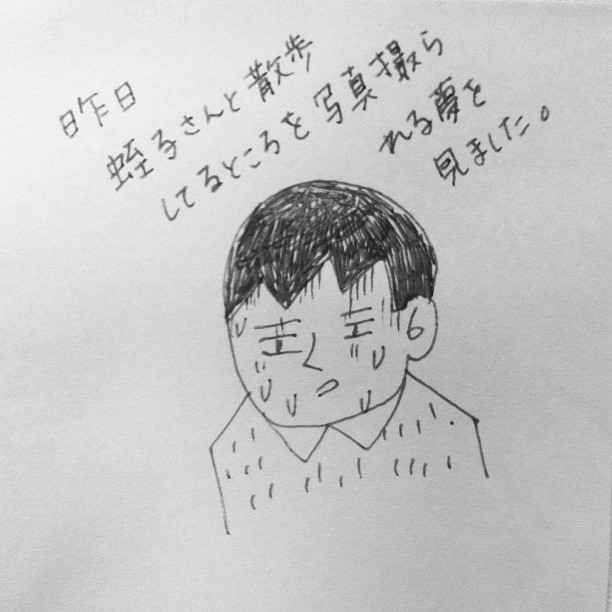 昨日
蛭子さんと散歩
してるところを写真撮ら
れる夢を
見ました。